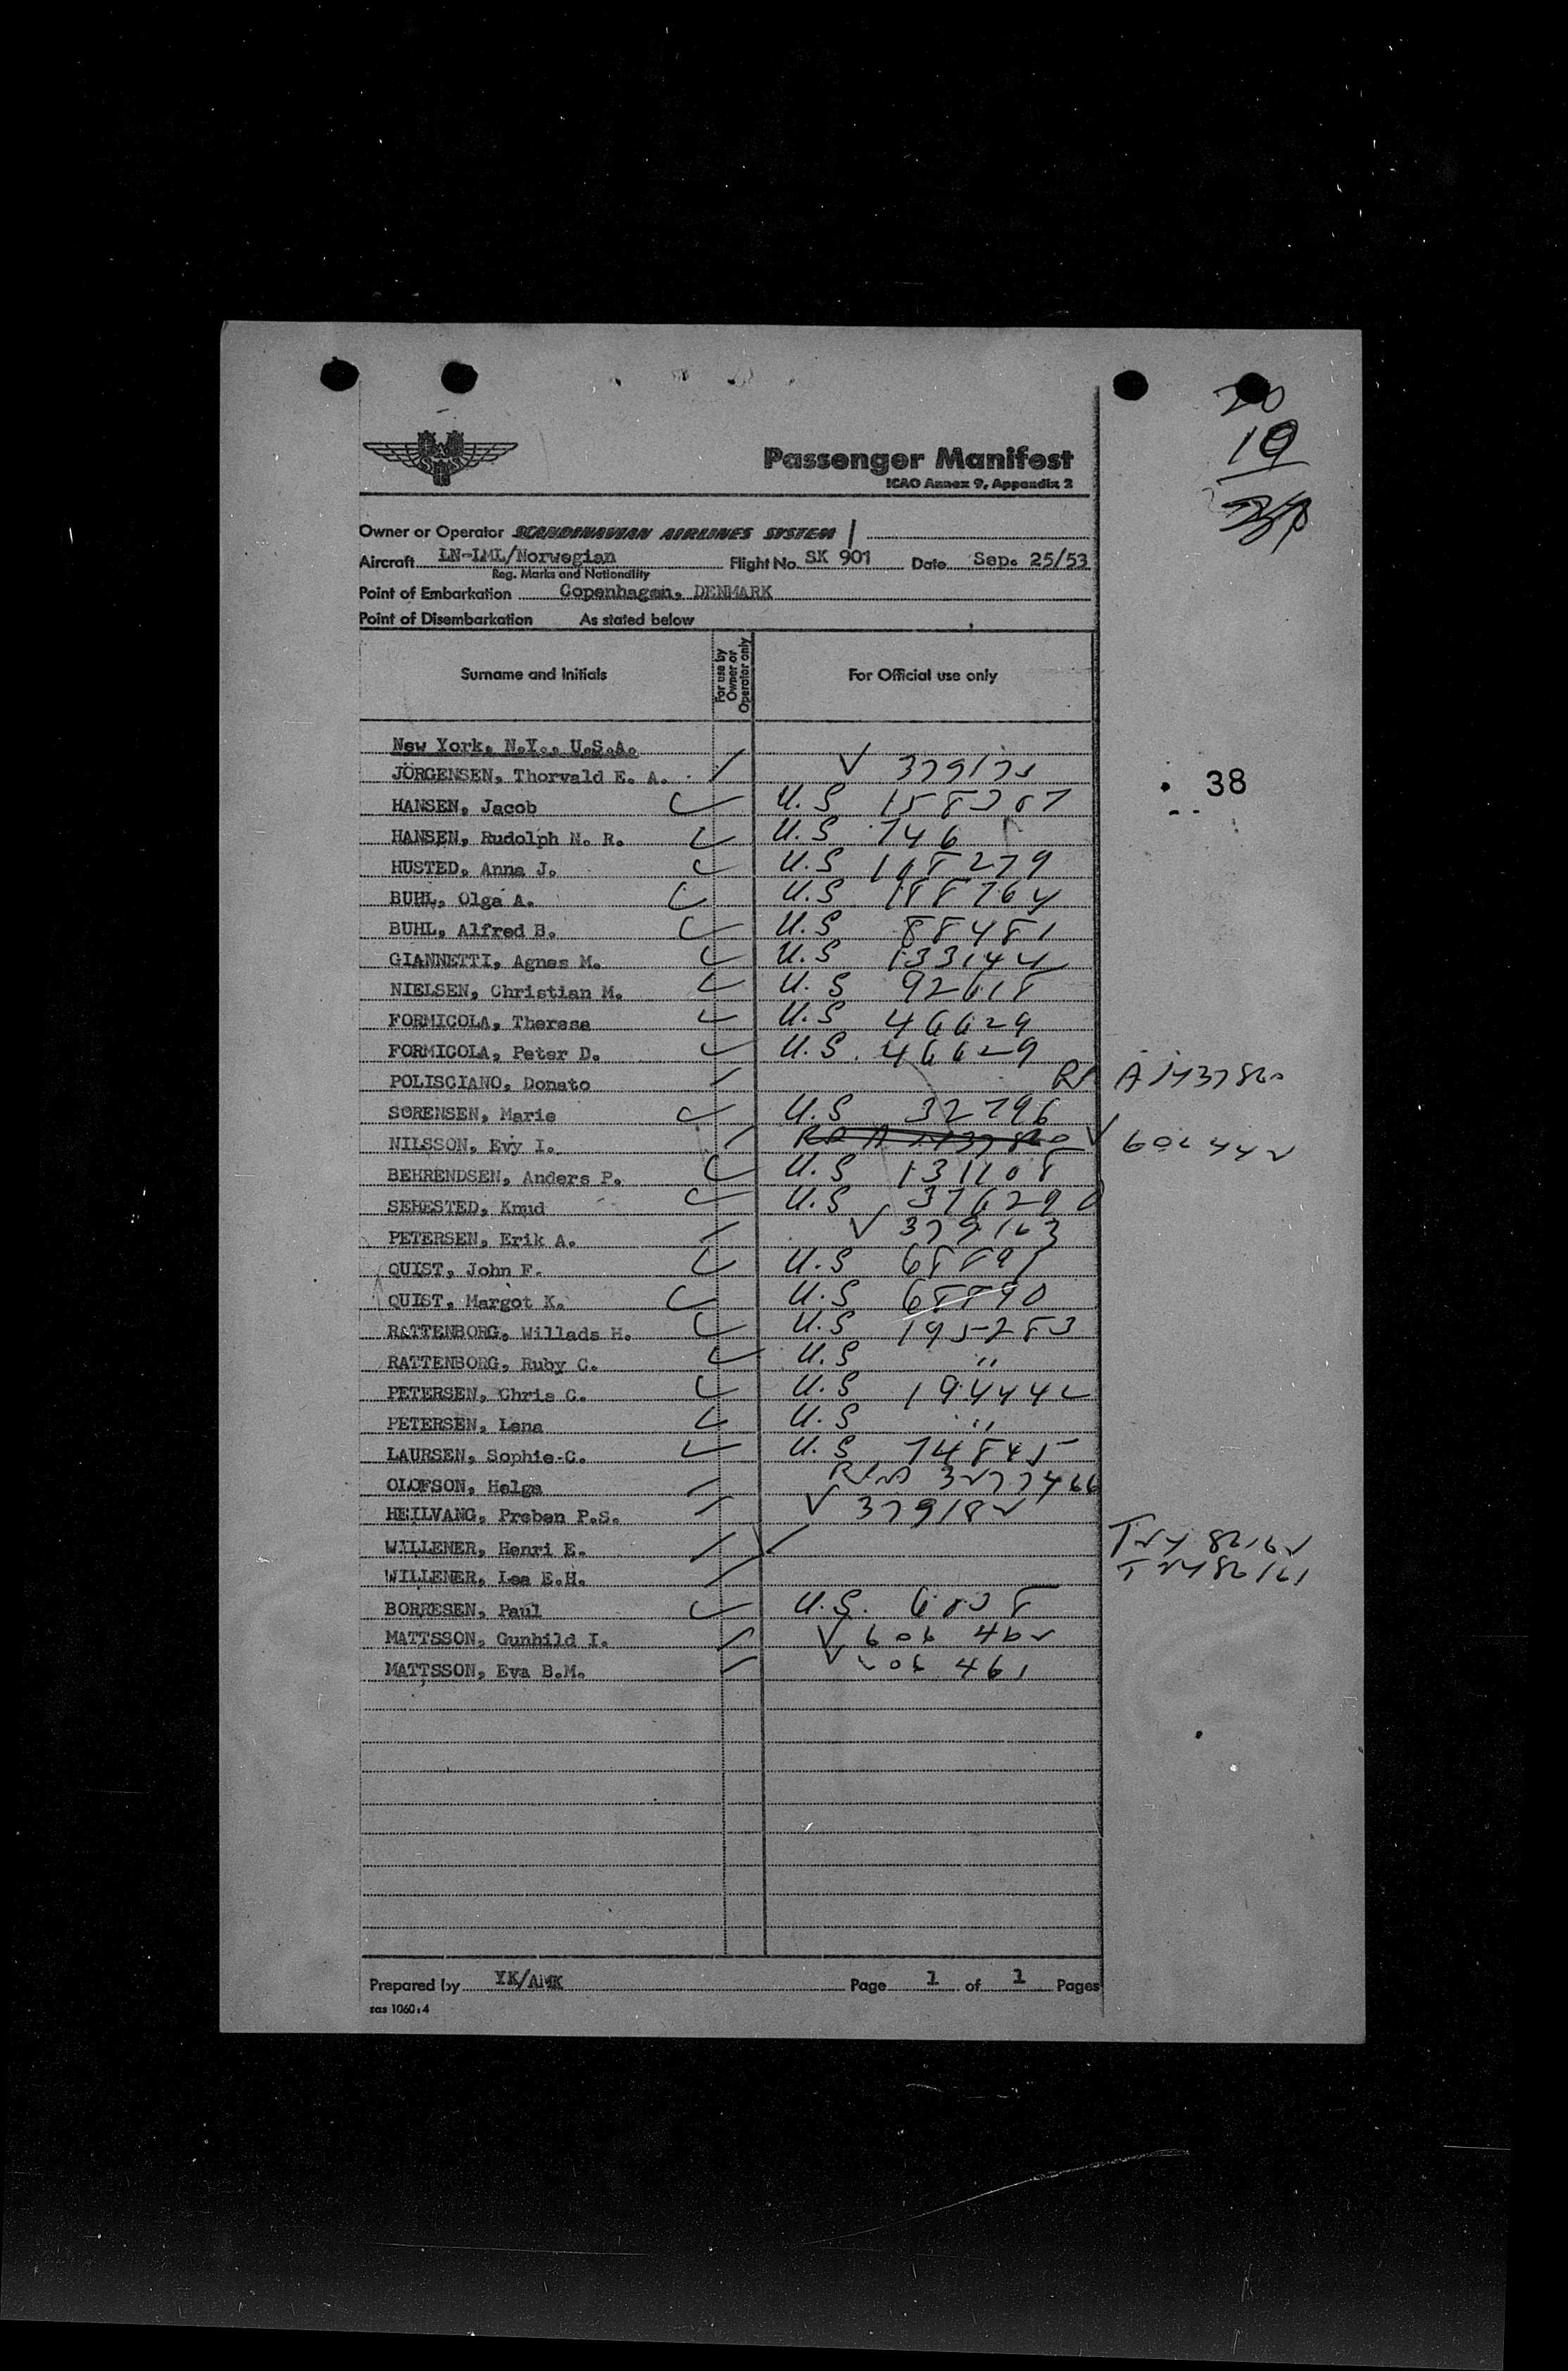 20
19
Passenger Manifest
ICAO Annex 9, Appendix 2
Owner or Operator SCANDINAVIAN AIRLINES SYSTEM
Aircraft LN-LML/Norwegian Flight No. SK 901 Date Sep. 25/53
Reg. Marks and Nationality
Point of Embarkation Copenhagen, DENMARK
Point of Disembarkation As stated below
Surname and Initials For use by Owner or Operator only For Official use only
New York, N.Y., U.S.A.
JÖRGENSEN, Thorvald E. A. V 379175
38
HANSEN, Jacob U.S 158367
HANSEN, Rudolph N. R. U.S 746
HUSTED, Anna J. U.S 168279
BUHL, Olga A. U.S 188764
BUHL, Alfred B. U.S 88481
GIANNETTI, Agnes M. U.S 133144
NIELSEN, Christian M. U.S 92618
FORMICOLA, Theresa U.S 46629
FORMICOLA, Peter D. U.S. 46629
POLISCIANO, Donato RP A
SORENSEN, Marie U.S 32796
NILSSON, Evy I. V 606442
BEHRENDSEN, Anders P. U.S 131108
SEHESTED, Knud U.S 376290
PETERSEN, Erik A. V 379163
QUIST, John F. U.S 68891
QUIST, Margot K. U.S 68890
RATTENBORG, Willads H. U.S 195283
RATTENBORG, Ruby C. U.S "
PETERSEN, Chris C. U.S 194442
PETERSEN, Lena U.S "
LAURSEN, Sophie C. U.S 74845
OLOFSON, Helge 3277466
HEILVANG, Preben P.S. V 379182
WILLENER, Henri E.
WILLENER, Lea E.H.
BORRESEN, Paul U.S.
MATTSSON, Gunhild I. V 606 462
MATTSSON, Eva B.M. V 606 461
Prepared by YK/AMK Page 1 of 1 Pages
sas 1060:4